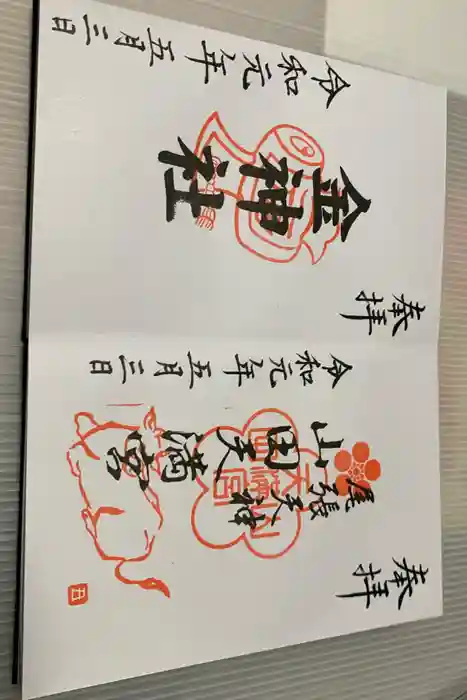 奉拝
尾張天神
山田天満宮
令和元年五月三日
奉拝
金神社
令和元年五月三日